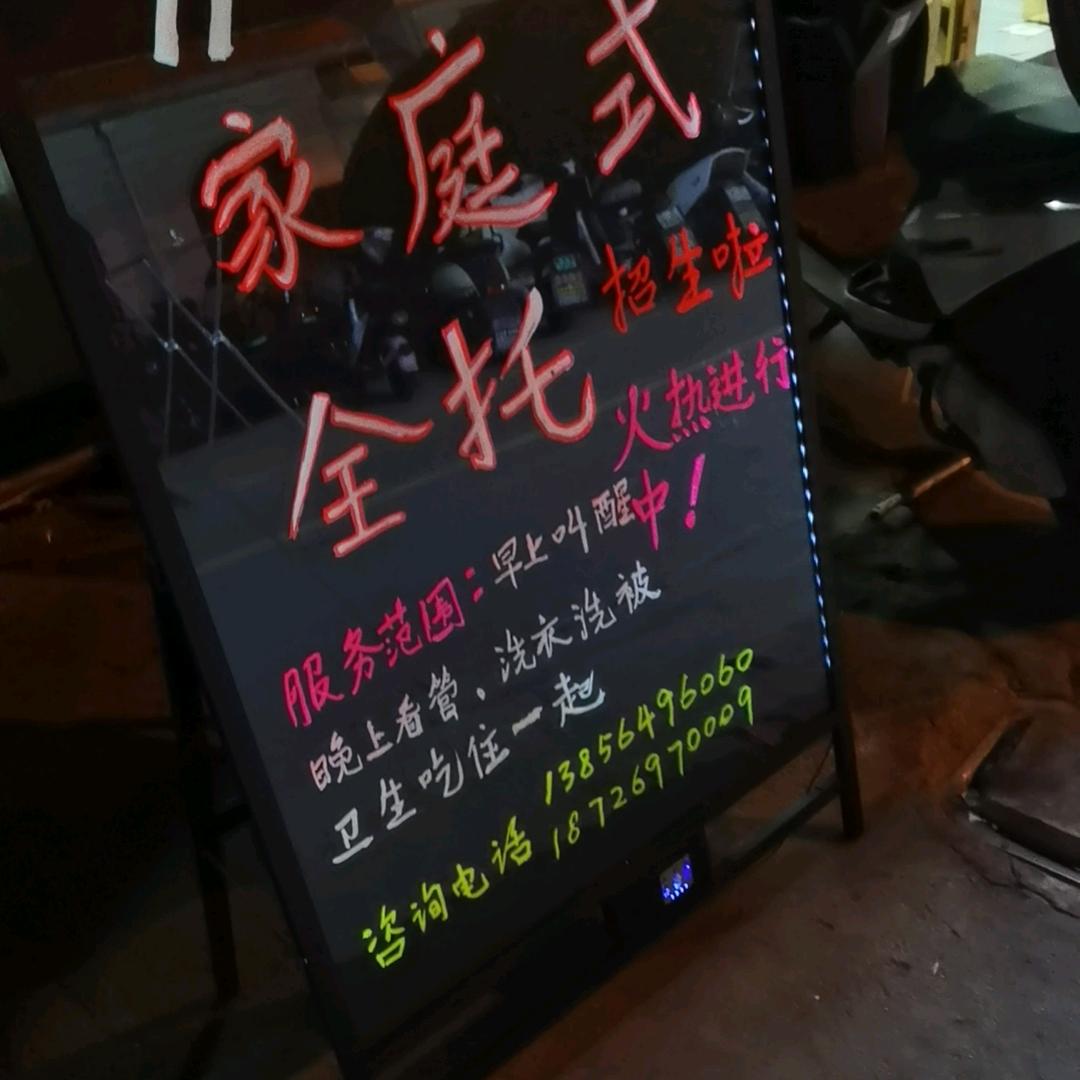 家庭式
招生啦
全托
火热进行
中！
服务范围：早上叫醒
晚上看管、洗衣洗被
卫生吃住一起
13856496060
咨询电话 18726970009